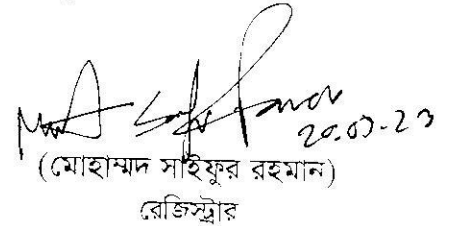 20.07.23
(মোহাম্মদ সাইফুর রহমান)
রেজিস্ট্রার